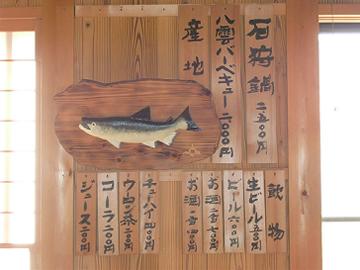 石狩鍋 二、五〇〇円
八雲バーベキュー 二〇〇〇円
産地
飲物
生ビール 五五〇円
ビール 六〇〇円
お酒
お酒
チューハイ 四〇〇円
ウーロン茶 二〇〇円
コーラ 二〇〇円
ジュース 二〇〇円